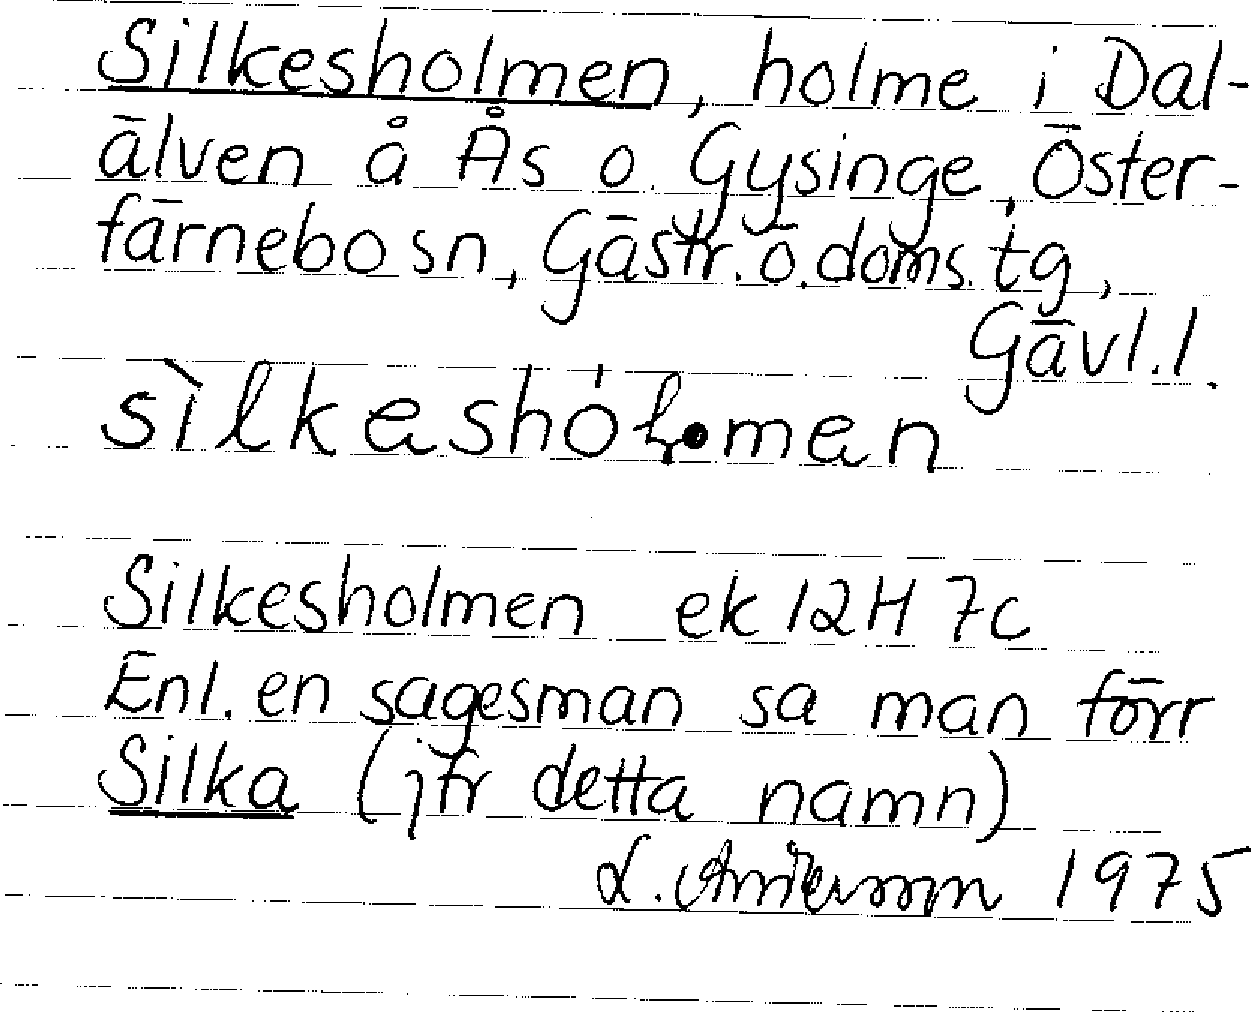 Silkesholmen, holme i Dal-
älven å Ås o. Gysinge, Öster-
färnebo sn, Gästr. ö. doms. tg,
Gävl. l.
sìlkeshó
Silkesholmen ek 12H 7c
Enl. en sagesman sa man förr
Silka (jfr detta namn)
L. 1975